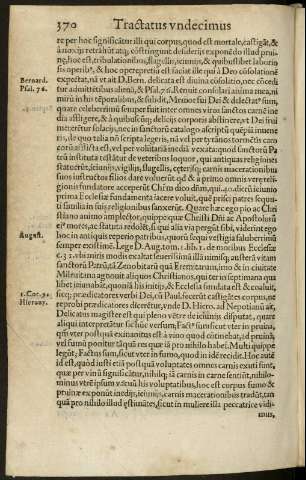 370 Tractatus vndecimus
re per hoc significātur illi qui corpus, quod est mortale, castigāt, &
à noxijs retrahūt atq; cōstringunt desiderijs exponēdo illud prui-
nę, hoc est, tribulationibus, flagellis, ieiunijs, & quibuslibet laborio
sis operib⁹, & hoc operepretiū est faciat ille qui à Deo cōsolationē
Bernard. expectat, nā vt ait D. Bern. delicata est diuina cōsolatio, nec cōcedi
Psal. 76. tur admittētibus alienā, & Psal. 76. Renuit consolari anima mea, ni
mirū in his tēporalibus, & subdit, Memor fui Dei & delectat⁹ sum,
quare celeberrimū semper fuit inter omnes viros sanctos carnē ine
dia affligere, & à quibuscūq; delicijs corporis abstinere, vt Dei frui
meretētur solacijs, nec in sanctorū catalogo ascriptū quēpiā inuene
ris, de quo talia nō scripta legeris, nā vel per tyrānos tormētis cara
eorū afflicta est, vel per voluntariā mediā vexata: quod sanctorū Pa
trū instituta testātur de veteribus loquor, qui antiquas religiones
statuerūt, ieiunijs, vigilijs, flagellis, ceterisq; carnis macerationibus
suos instructos filios dare voluerūt qđ & à primo omnis verę reli
gionis fundatore acceperūt Chrm̄ dico dn̄m, qui 40. dierū ieiunio
prima Ecclesiæ fundamenta iacere voluit, quē prisci patres sequu-
ti similia in suis religionibus sanxerūt. Quare hæc ego pio ac Chri
stiano animo amplector, quippe quæ Christi Dn̄i ac Apostolorū
ei⁹ mores, ac statuta redolēt, si quæ alia via pergūt sibi, viderint ego
August. hoc in antiquis reperio patribus, quorū sequi vestigia saluberrimū
semper existime. Lege D. Aug. tom. 1. lib. 1. de moribus Ecclesiæ
c. 31. vbi miris modis exaltat seuerissimā illā nimisq; austerā vitam
sanctorū Patrū, tā Zenobitarū quā Eremytarum, imo & in ciuitate
Militruina agnouit aliquos Christianos, qui ter in septimana qua
libet ieiunabāt, quoniā his initijs, & Ecclesia fundata est & coaluit,
1. Cor. 9. sicq; prædicatores verbi Dei, cū Paul. fecerūt castigātes corpus, ne
Hieron. reprobi prædicatores dicerētur, vnde D. Hiero. ad Nepotianū ait,
Delicatus magister est qui pleno vētre de ieiunijs disputat, quare
aliqui interpretātur sic huc versum, Fact⁹ sum sicut vter in pruina,
quā vter postquā exinanitus est à vino quod cōtinebat, ad pruinā,
vel fumū ponitur tāquā res quæ iā pro nihilo habet. Multi quippe
legūt, Factus sum, sicut vter in fumo, quod in idē recidit. Hoc autē
id est, quòd iusti etiā postquā voluptates omnes carnis exuti sunt,
quæ per vinū significātur, nihilq; iā carnis in carne sentiūt, nihilo-
minus vtrē ipsum vacuū his voluptatibus, hoc est corpus fumo &
pruinæ exponūt inedijs, ieiunijs, carnis macerationibus tradūt, tan
quā pro nihilo illud æstimātes, sicut in muliere illa peccatrice vidi-
mus,